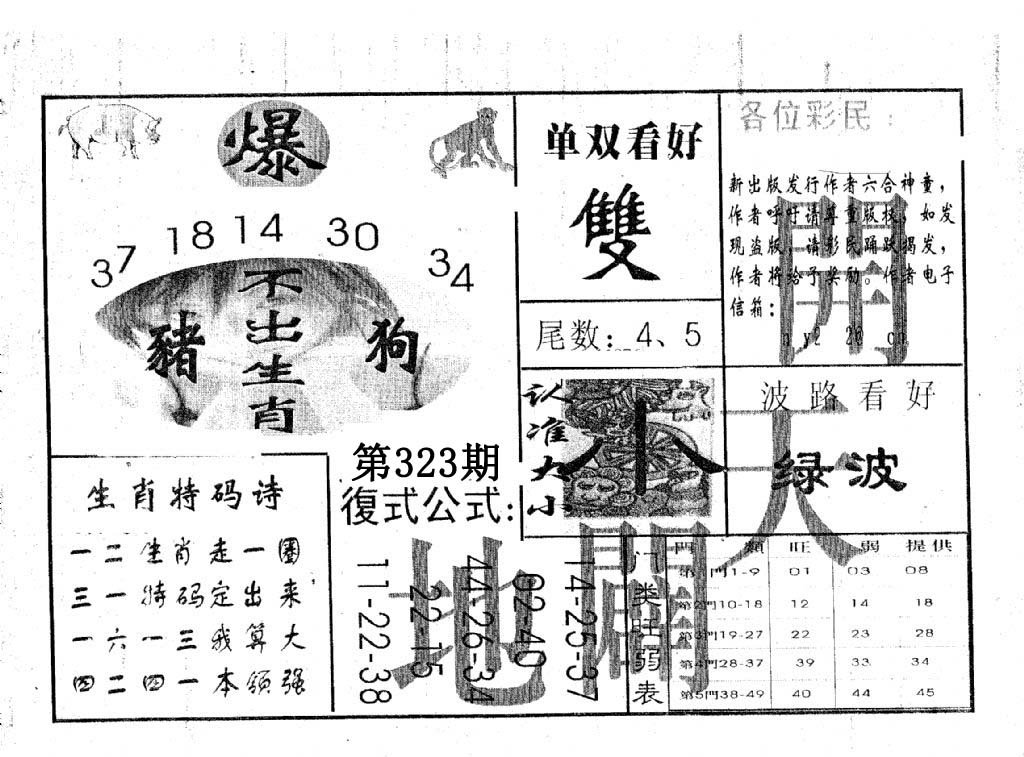 爆
37 18 14 30 34
不出生肖
豬
狗
单双看好
雙
尾数：4、5
各位彩民：
新出版发行作者六合神童，
作者呼吁请尊重版权，如发
现盗版，请彩民踊跃揭发，
作者将给予奖励。作者电子
信箱：
開
认准大小
小
波路看好
绿波
天
第323期
復式公式：
11-22-38
22-15
44-26-34
02-40
14-25-37
地
闢
生肖特码诗
一二生肖走一圈
三一特码定出来
一六一三我算大
四二四一本领强
门类旺弱表
門類 旺 弱 提供
第1門1-9 01 03 08
第2門10-18 12 14 18
第3門19-27 22 23 28
第4門28-37 39 33 34
第5門38-49 40 44 45